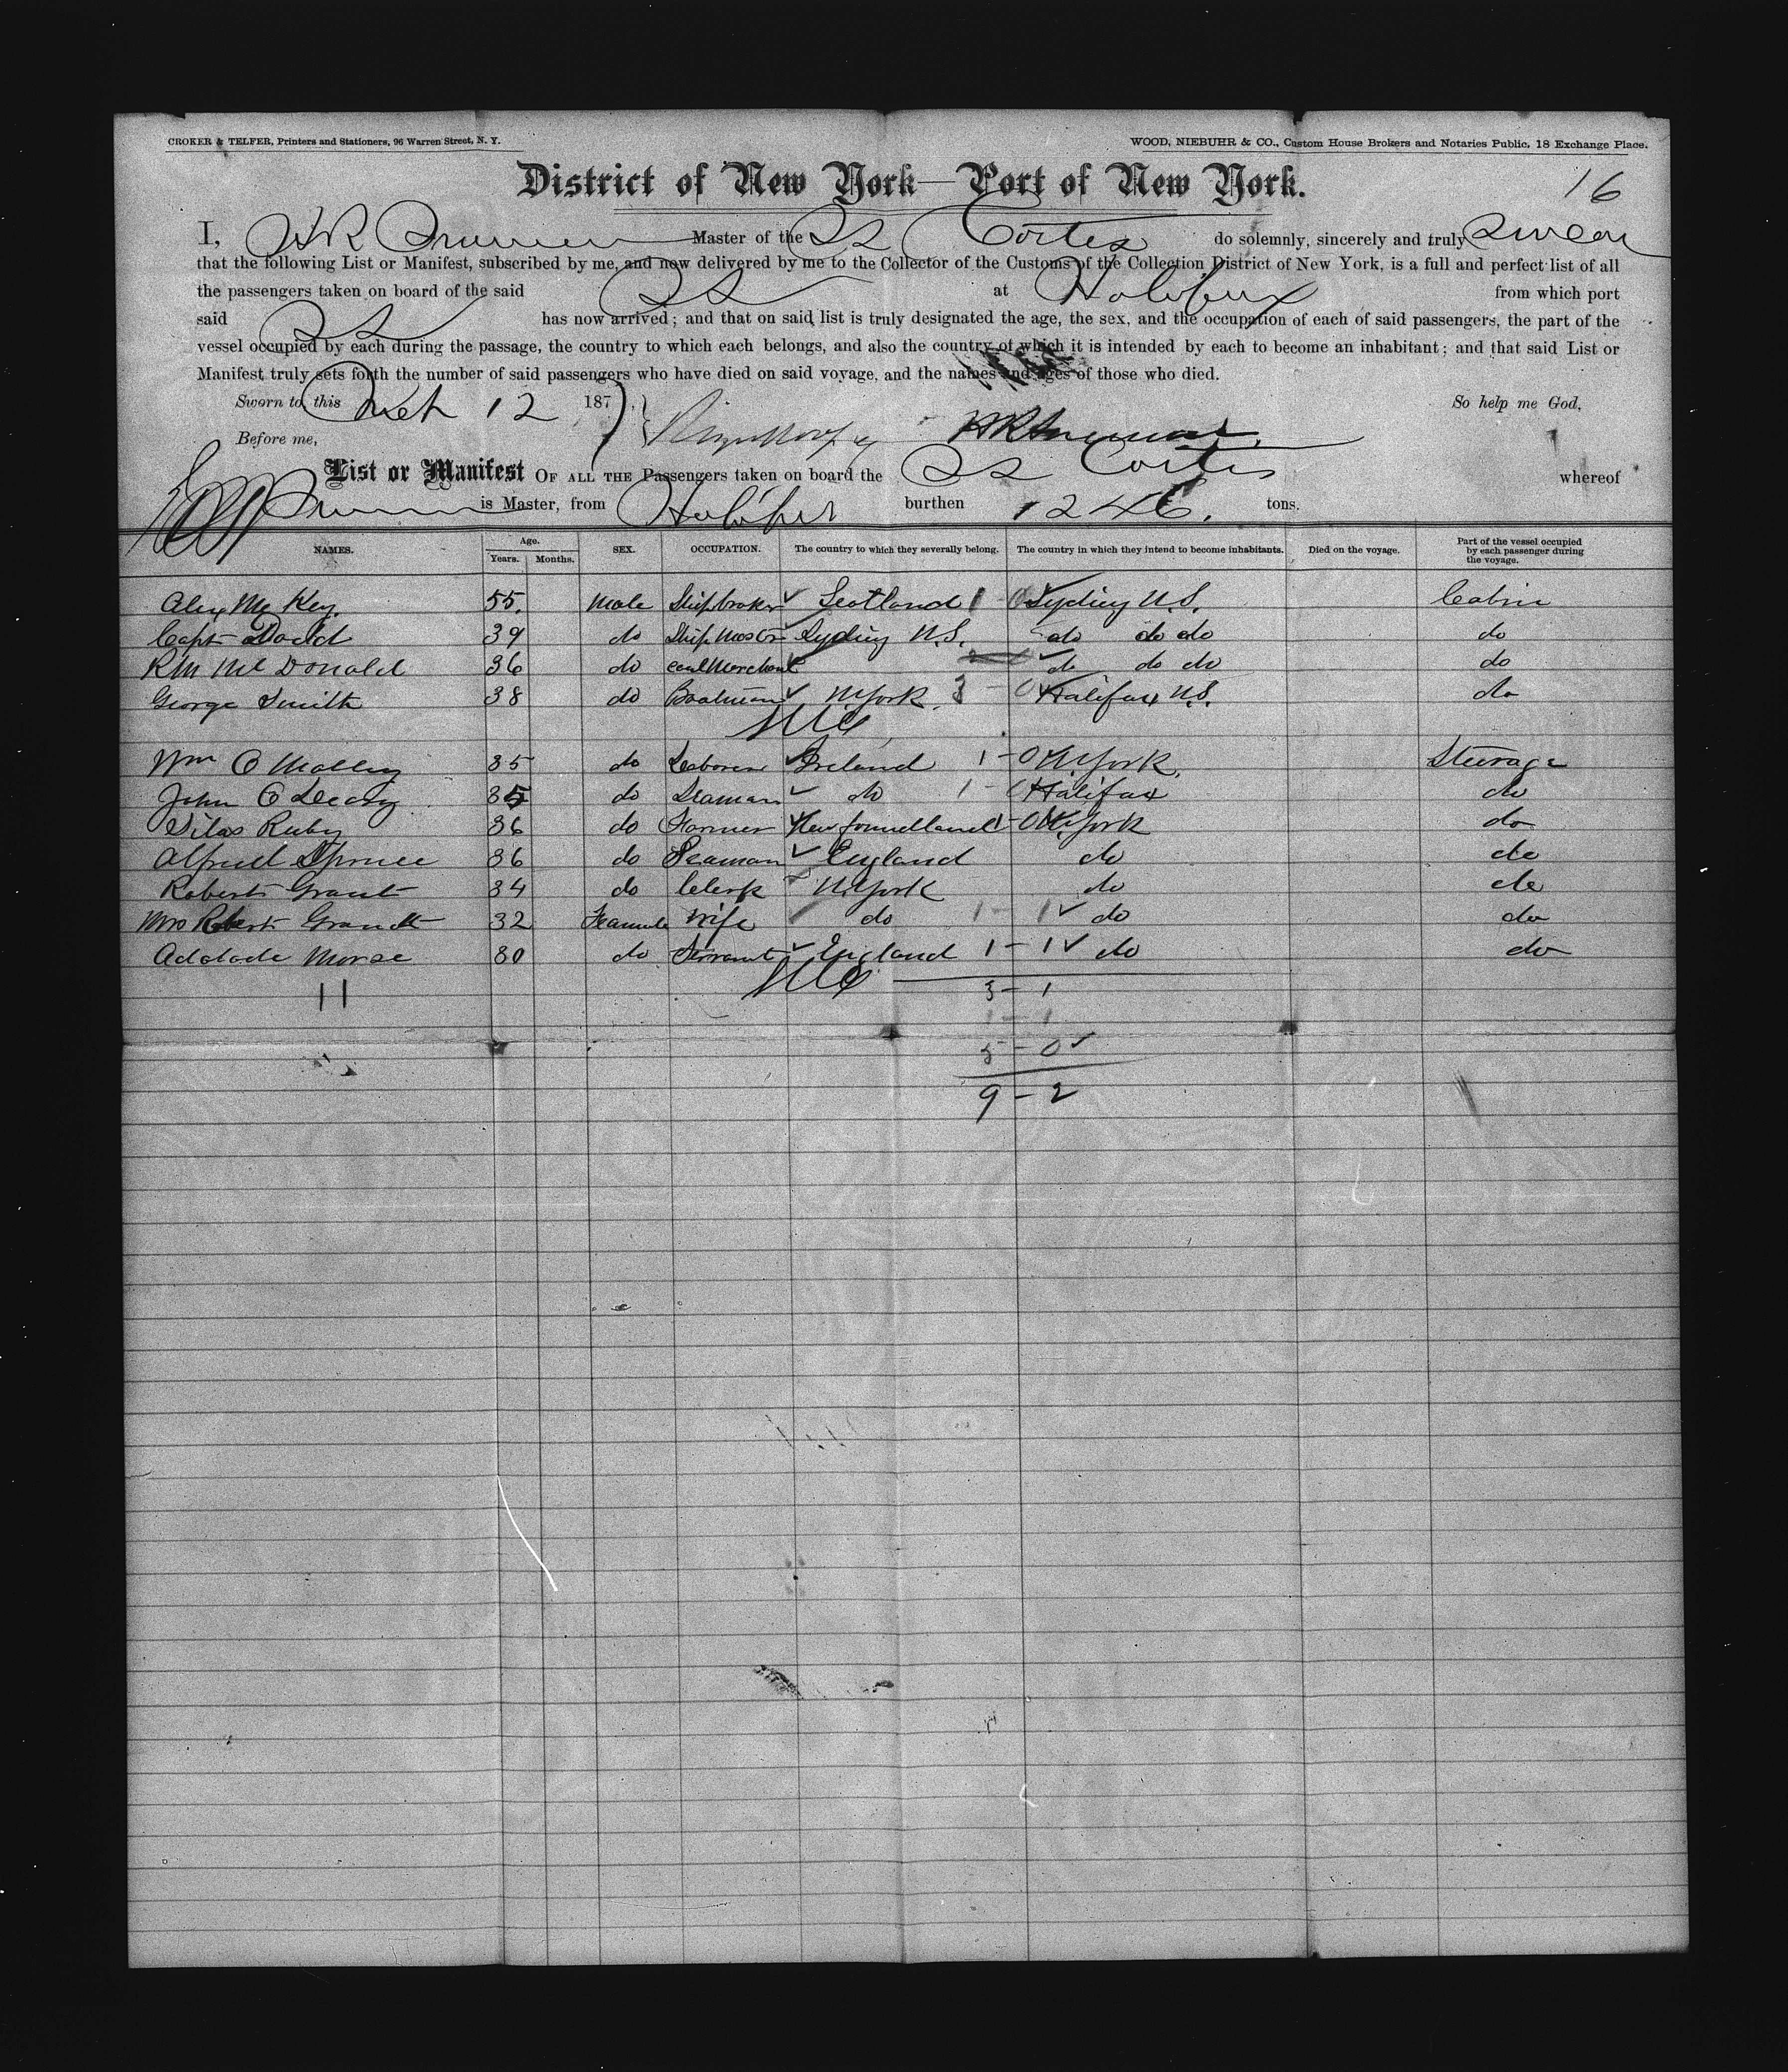 CROKER & TELFER, Printers and Stationers, 96 Warren Street, N. Y. WOOD, NIEBUHR & CO., Custom House Brokers and Notaries Public, 18 Exchange Place.
District of New York—Port of New York. 16
I, Master of the SS Cortes do solemnly, sincerely and truly swear
that the following List or Manifest, subscribed by me, and now delivered by me to the Collector of the Customs of the Collection District of New York, is a full and perfect list of all
the passengers taken on board of the said SS at Halifax from which port
said SS has now arrived; and that on said list is truly designated the age, the sex, and the occupation of each of said passengers, the part of the
vessel occupied by each during the passage, the country to which each belongs, and also the country of which it is intended by each to become an inhabitant; and that said List or
Manifest truly sets forth the number of said passengers who have died on said voyage, and the names and ages of those who died.
Sworn to this 12 187 So help me God,
Before me,
List or Manifest OF ALL THE Passengers taken on board the SS Cortes whereof
is Master, from Halifax burthen 1246. tons.
NAMES. Age. Years. Months. SEX. OCCUPATION. The country to which they severally belong. The country in which they intend to become inhabitants. Died on the voyage. Part of the vessel occupied by each passenger during the voyage.
Alex Mc Key. 55. Male Shipbroker Scotland 1 - 0 Sydney N.S. Cabin
Capt Dodd 39 do Ship Master Sydney N.S. do do do do
R M Mc Donald 36 do coal Merchant do do do do
George Smith 38 do Boatman N York. 3 - 0 Halifax N.S. do
Wm O Malley 35 do Laborer Ireland 1 - 0 N York. Steerage
John O Leary 35 do Seaman do 1 - 0 Halifax do
Silas Ruby 36 do Farmer Newfoundland 1 - 0 N. York do
Alfred Spruce 36 do Seaman England do do
Robert Grant 34 do Clerk N. York do do
Mrs Robert Grandt 32 Feamule Wife do 1 - 1 do do
Adalade Morse 30 do Servant England 1 - 1 do do
11 3 - 1
1 - 1
5 - 0
9 - 2